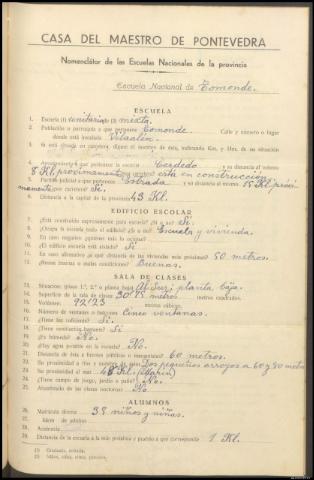 CASA DEL MAESTRO DE PONTEVEDRA
Nomenclátor de las Escuelas Nacionales de la provincia
Escuela Nacional de Tomonde.
ESCUELA
1. Escuela (1) unitaria (2) mixta.
2. Población o parroquia a que pertenece Tomonde Calle y número o lugar
donde está localizada Vilaelén.
3. Si está enclavada en carretera, dígase el nombre de ésta, indicando Km. y Hm. de su situación
4. Ayuntamiento a que pertenece Cerdedo y su distancia al mismo
8 Kl. proximamente está en construcción
5. Partido judicial a que pertenece Estrada y su distancia al mismo 15 Kl. próxi
mamente por carretera? Si
6. Distancia a la capital de la provincia 43 Kl.
EDIFICIO ESCOLAR
7. ¿Está construído expresamente para escuela? Si.
8. ¿Ocupa la escuela todo el edificio? Escuela y vivienda.
9. En caso negativo ¿quiénes más lo ocupan?
10. ¿El edificio escuela está aislado? Si
11. En caso afirmativo ¿a qué distancia de las viviendas más próximas? 50 metros.
12. ¿Buenas, buenas o malas condiciones? Buenas.
SALA DE CLASES
13. Situación: (pisos 1.º, 2.º o planta baja) Al Sur; planta baja.
14. Superficie de la sala de clases 30'75 metros metros cuadrados.
15. Volumen: 92'25 metros cúbicos.
16. Número de ventanas o balcones Cinco ventanas.
17. ¿Tiene luz suficiente? Si.
18. ¿Tiene ventilación bastante? Si
19. ¿Es húmeda? No.
20. ¿Hay agua potable en la escuela? No.
21. Distancia de ésta a fuentes públicas o manantiales 60 metros.
22. Su proximidad a ríos o fuentes Dos pequeños arroyos a 60 y 80 metros
23. Su proximidad al mar 48 Kl. (Marín)
24. ¿Tiene campo de juego, jardín o patio? No.
25. Alumbrado de las clases nocturnas No.
ALUMNOS
26. Matrícula diurna 38 niños y niñas.
27. Idem de adultos
28. Asistencia
29. Distancia de la escuela a la más próxima y pueblo a que corresponde 1 Kl.
(1) Graduada, unitaria.
(2) Niños, niñas, mixta, párvulos.